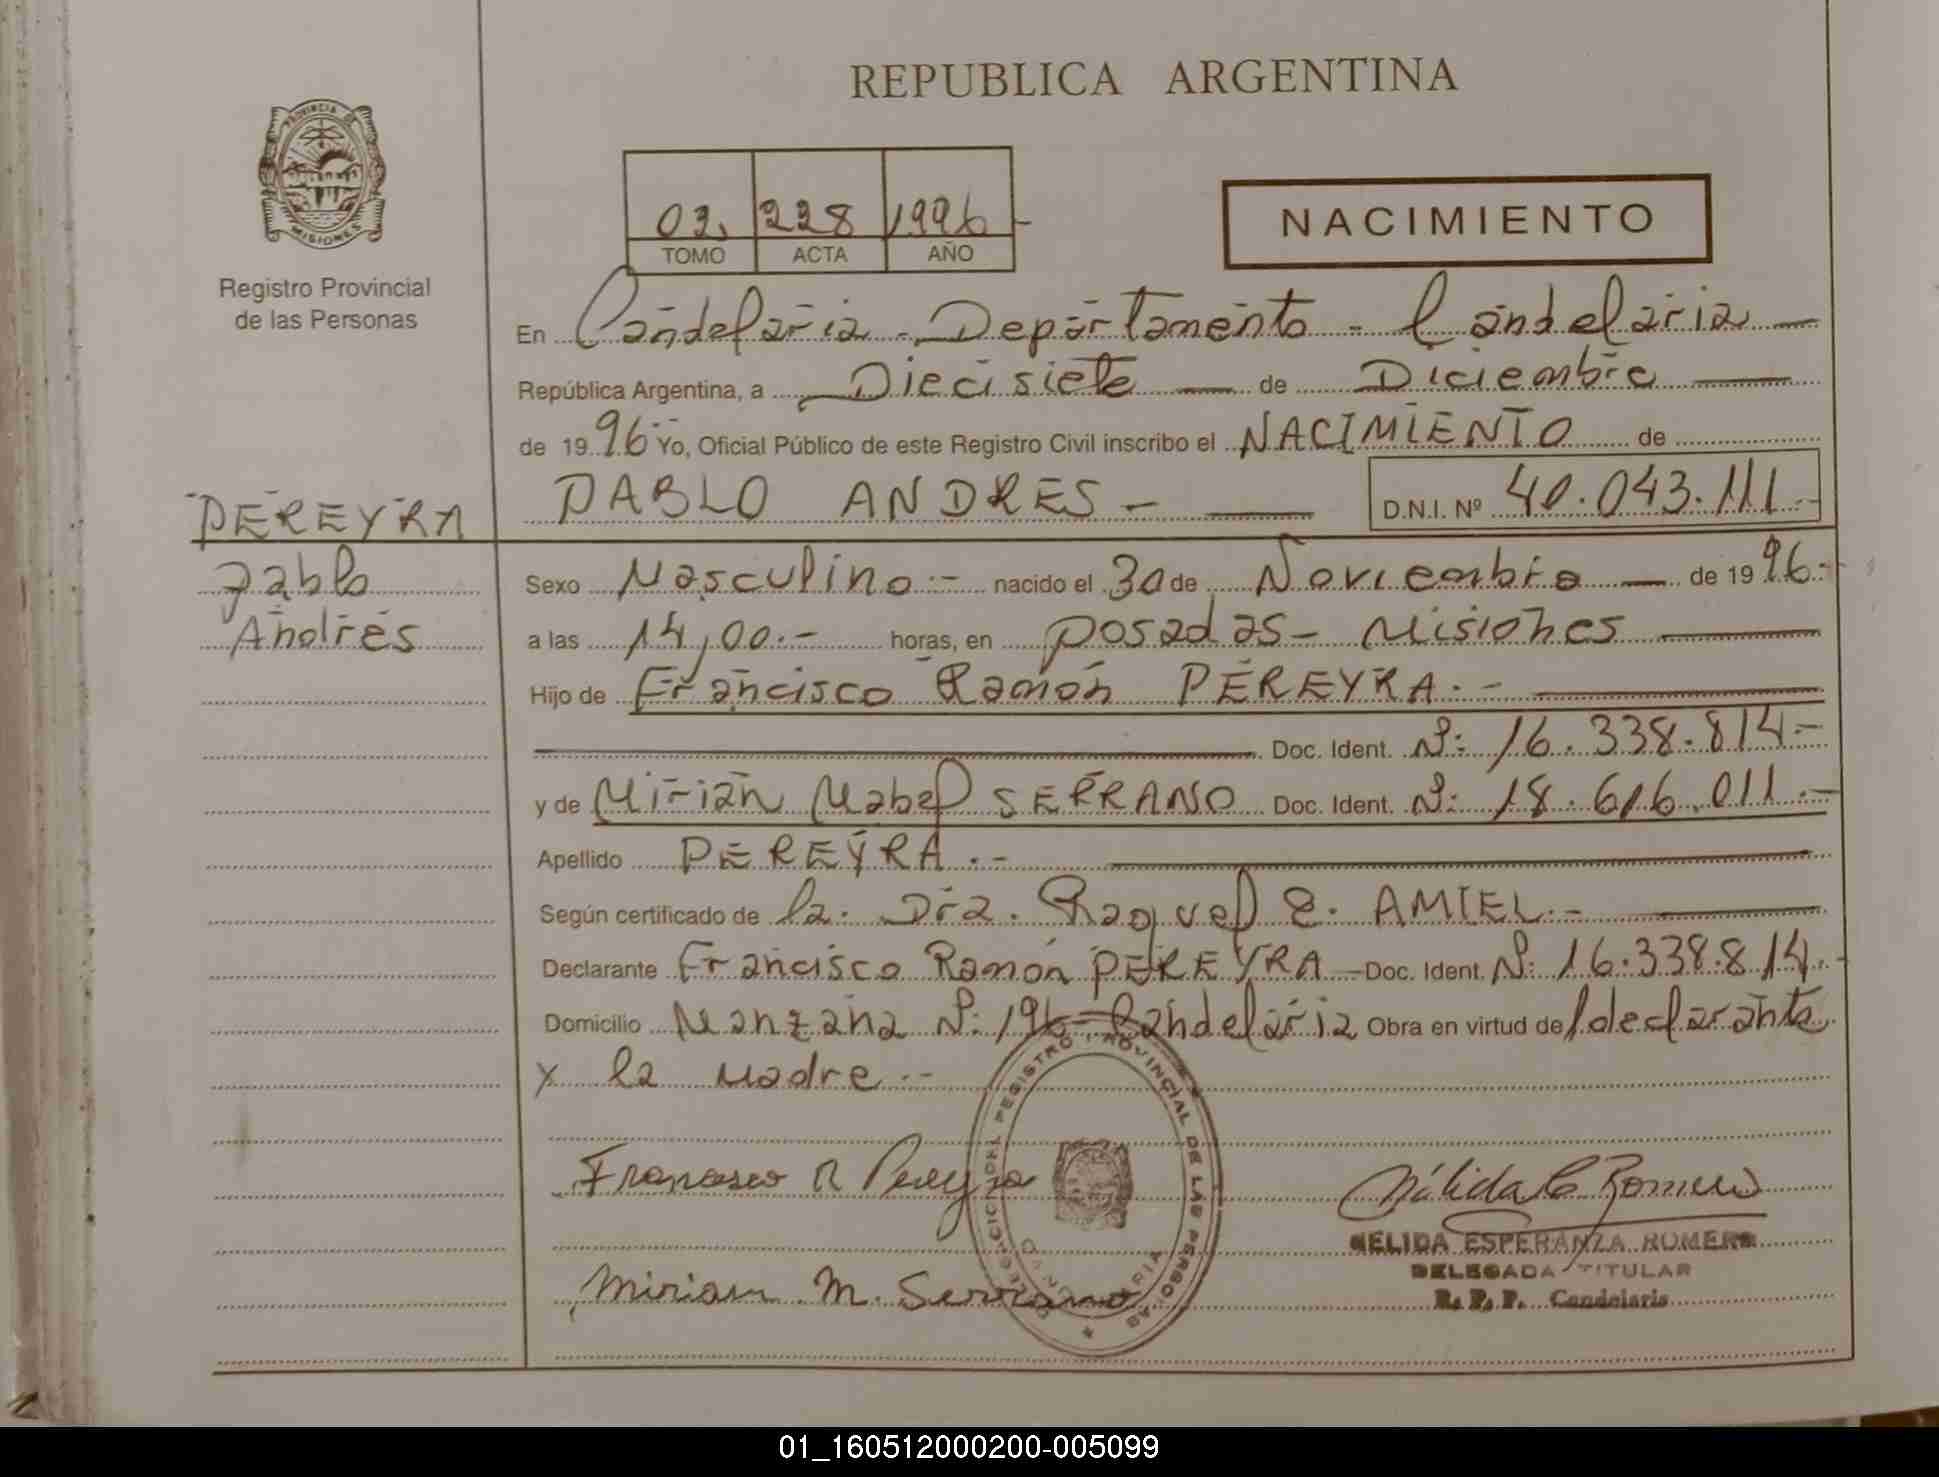 REPUBLICA ARGENTINA
PROVINCIA DE
MISIONES
Registro Provincial
de las Personas
02. 228 1996-
TOMO ACTA AÑO
NACIMIENTO
En Candelaria - Departamento - Candelaria —
República Argentina, a Diecisiete — de Diciembre —
de 1996 Yo, Oficial Público de este Registro Civil inscribo el NACIMIENTO de
PABLO ANDRES - — D.N.I. Nº 40.043.111.-
PEREYRA
Pablo
Andrés
Sexo Masculino.- nacido el 30 de Noviembre — de 1996.-
a las 14,00.- horas, en Posadas - Misiones —
Hijo de Francisco Ramón PEREYRA.- —
— Doc. Ident. Nº: 16.338.814.-
y de Mirian Mabel SERRANO Doc. Ident. Nº: 18.616.011.-
Apellido PEREYRA.- —
Según certificado de la Dra. Raquel E. AMIEL.- —
Declarante Francisco Ramón PEREYRA - Doc. Ident. Nº: 16.338.814.-
Domicilio Manzana Nº: 196 - Candelaria Obra en virtud del declarante
y la madre.-
REGISTRO PROVINCIAL DE LAS PERSONAS
Francisco R Pereyra
Nélida E Romero
NELIDA ESPERANZA ROMERO
DELEGADA TITULAR
R. P. P. Candelaria
Miriam M. Serrano
01_160512000200-005099